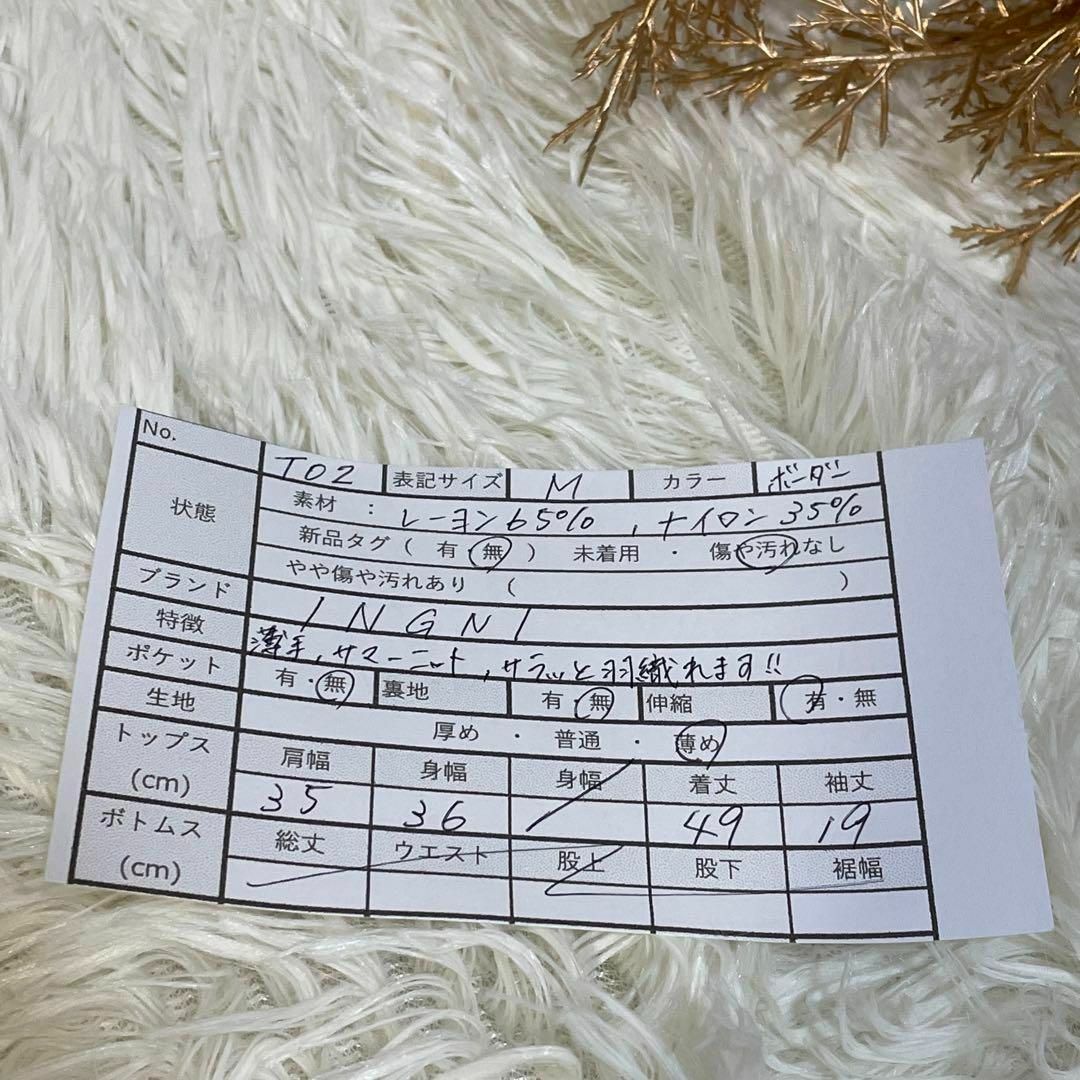 No. TO2 表記サイズ M カラー ボーダー
状態 素材 : レーヨン65%, ナイロン35%
新品タグ ( 有・無 ) 未着用 ・ 傷や汚れなし
やや傷や汚れあり ( )
ブランド INGNI
特徴 薄手, サマーニット, サラッと羽織れます!!
ポケット 有・無 裏地 有・無 伸縮 有・無
生地 厚め ・ 普通 ・ 薄め
トップス (cm) 肩幅 身幅 身幅 着丈 袖丈
35 36 49 19
ボトムス (cm) 総丈 ウエスト 股上 股下 裾幅